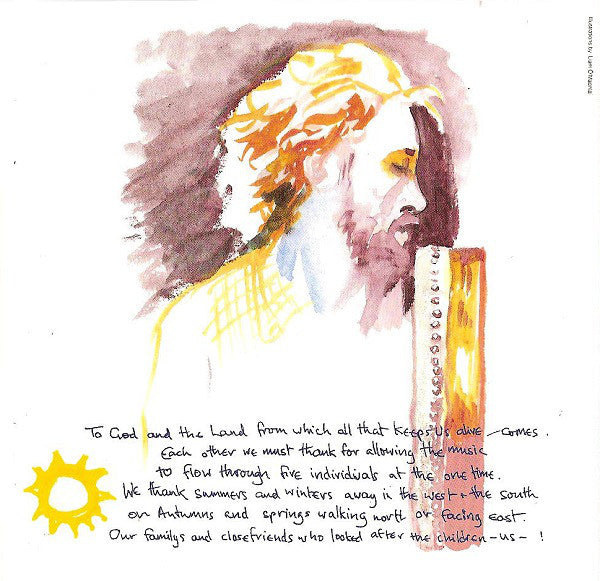 Illustrations by Liam O'Maonlai
To God and the Land from which all that keeps us alive – comes.
Each other we must thank for allowing the music
to flow through five individuals at the one time.
We thank summers and winters away in the west + the south
on Autumns and springs walking north or facing east.
Our familys and closefriends who looked after the children – us – !